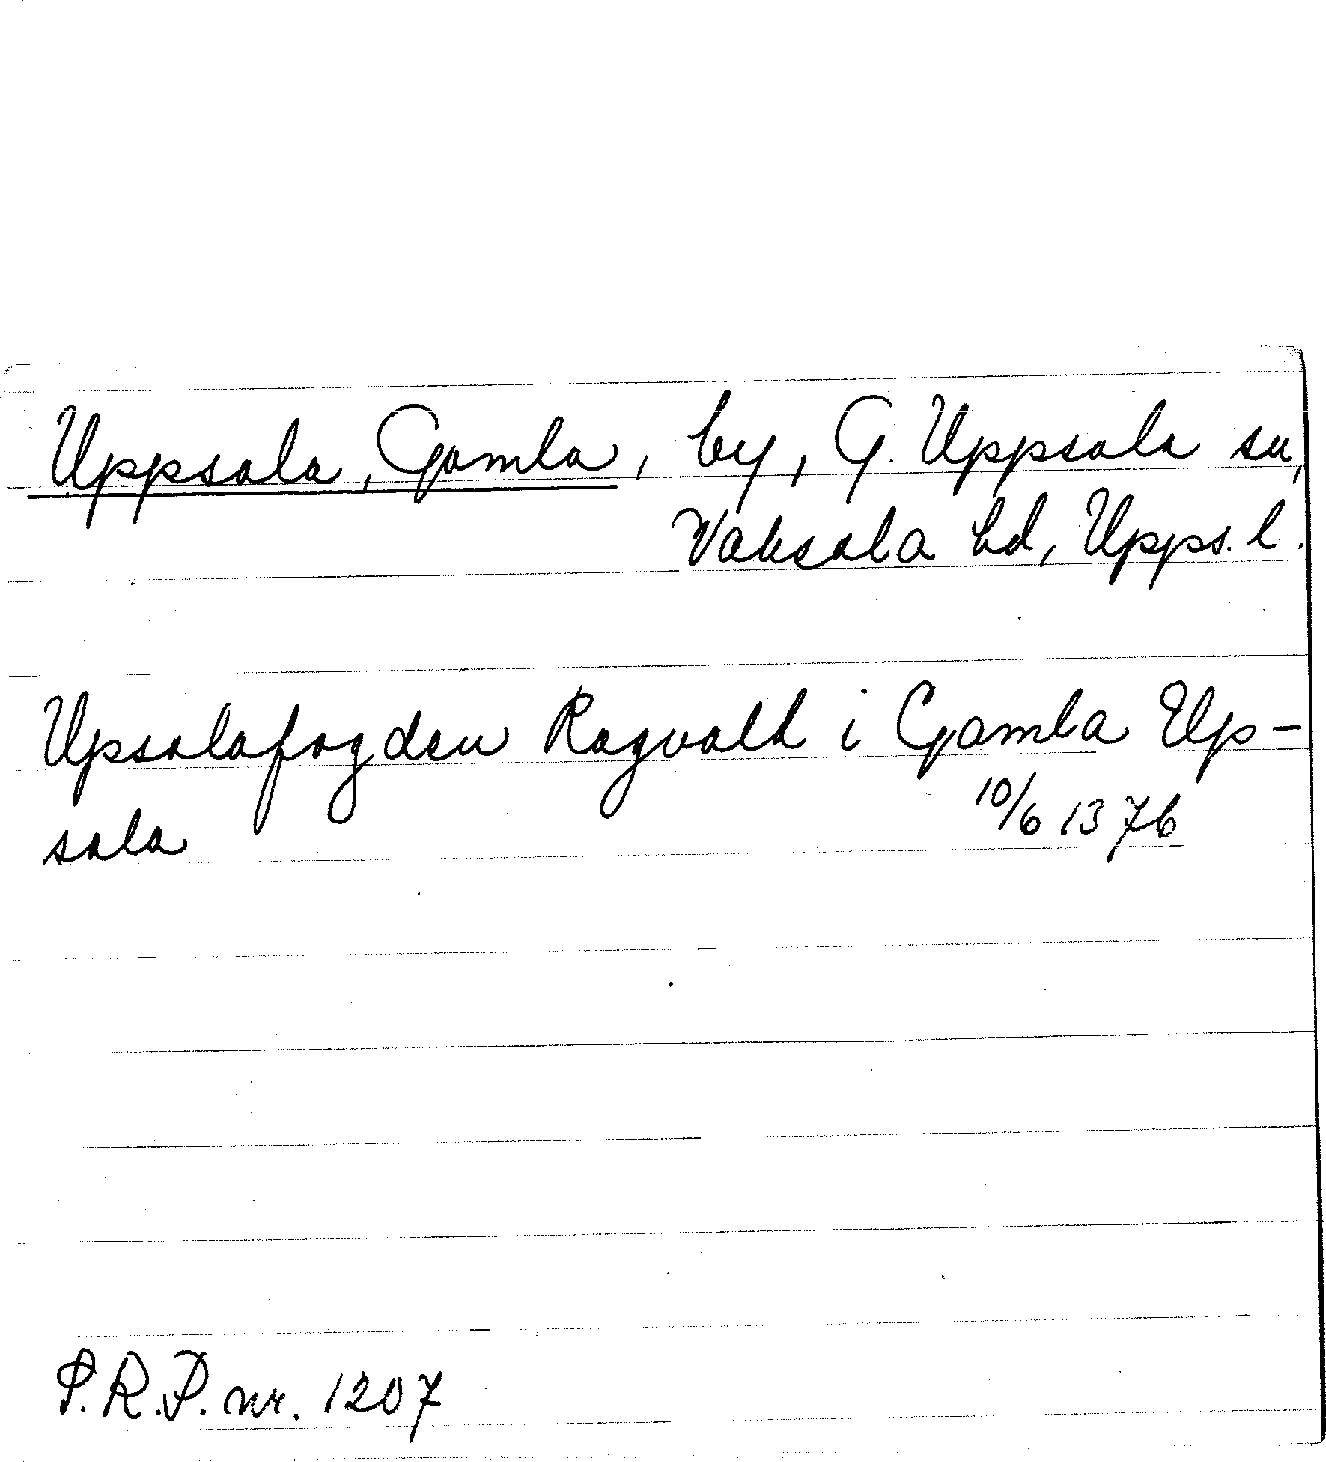 Uppsala, Gamla, by, G. Uppsala sn,
Vaksala hd, Upps. l.
Upsalafogden Ragvald i Gamla Up-
sala
10/6 1376
P.R.P. nr. 1207